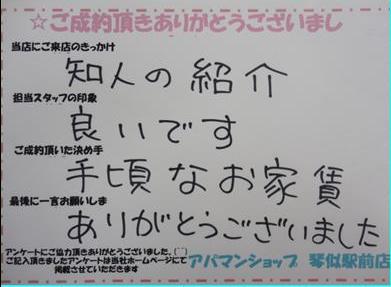 ☆ご成約頂きありがとうございまし
当店にご来店のきっかけ
知人の紹介
担当スタッフの印象
良いです
ご成約頂いた決め手
手頃なお家賃
最後に一言お願いしま
ありがとうございました
アンケートにご協力頂きありがとうございました。(^^)
ご記入頂きましたアンケートは当社ホームページにて
掲載させていただきます
アパマンショップ 琴似駅前店